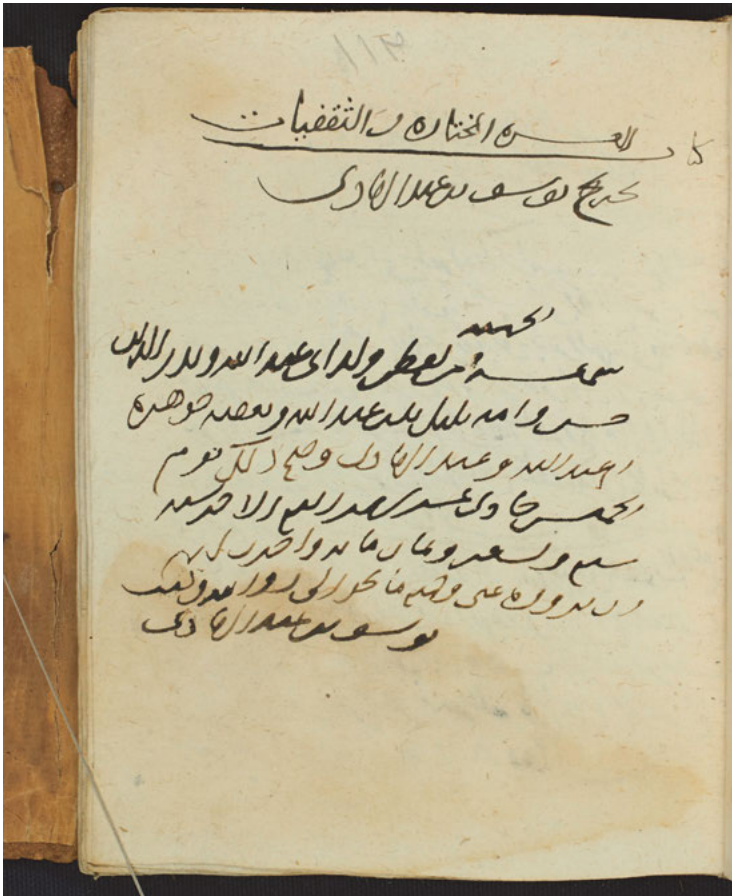 كتاب العشرة المختارة من الثقفيات
تخريج يوسف بن عبد الهادي
الحمد لله
سمعه من لفظي ولداي عبد الله وبدر الدين
حسن وأمه بلبل بنت عبد الله وبعضه جوهرة
عبد الله وعبد الهادي وصح ذلك يوم
الخميس حادي عشر شهر ربيع الآخر سنة
سبع وتسعين وثمان مائة وأجزت لهم
أن يرووه عني وجميع ما يجوز لي روايته وكتب
يوسف بن عبد الهادي